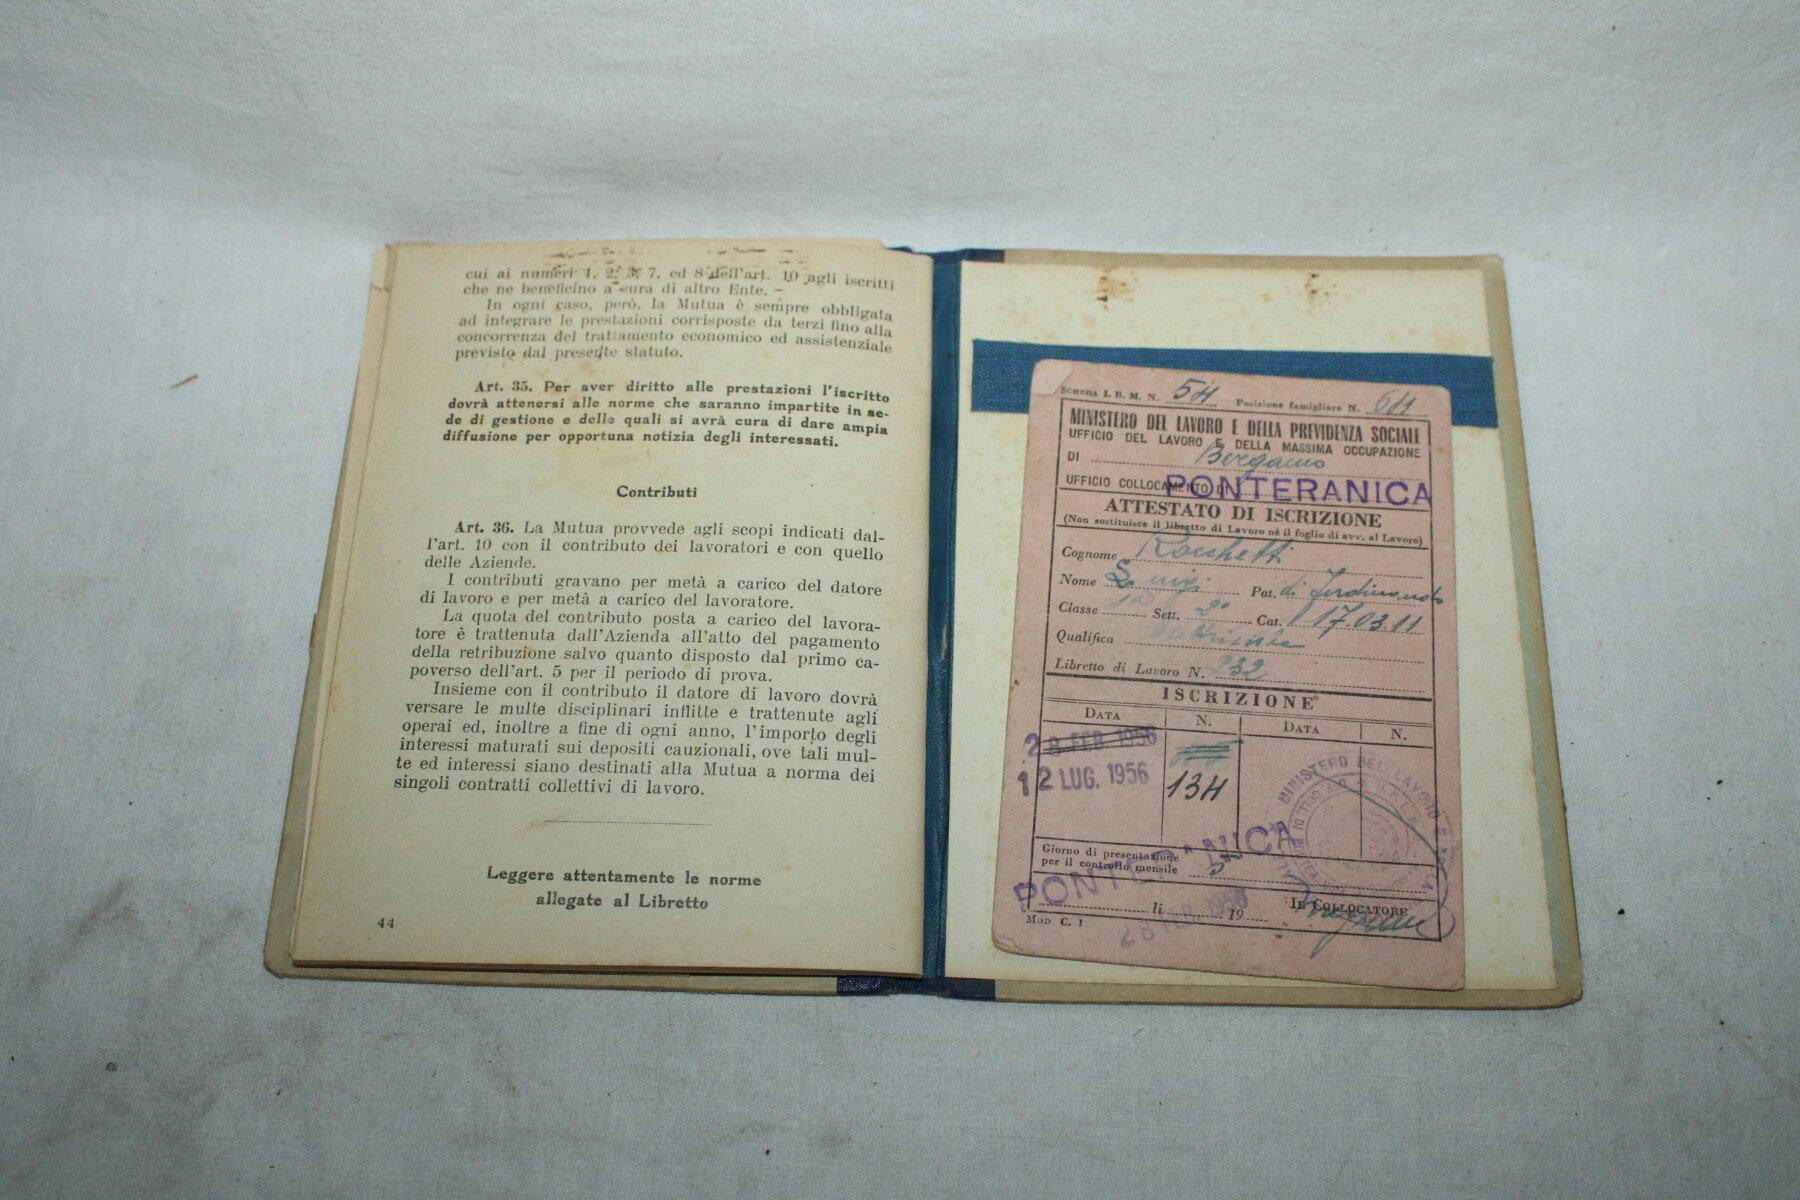 cui ai numeri 1, 2, 3, 7, ed 8 dell'art. 10 agli iscritti
che ne beneficino a cura di altro Ente.
In ogni caso, però, la Mutua è sempre obbligata
ad integrare le prestazioni corrisposte da terzi fino alla
concorrenza del trattamento economico ed assistenziale
previsto dal presente statuto.
Art. 35. Per aver diritto alle prestazioni l'iscritto
dovrà attenersi alle norme che saranno impartite in se-
de di gestione e delle quali si avrà cura di dare ampia
diffusione per opportuna notizia degli interessati.
Contributi
Art. 36. La Mutua provvede agli scopi indicati dal-
l'art. 10 con il contributo dei lavoratori e con quello
delle Aziende.
I contributi gravano per metà a carico del datore
di lavoro e per metà a carico del lavoratore.
La quota del contributo posta a carico del lavora-
tore è trattenuta dall'Azienda all'atto del pagamento
della retribuzione salvo quanto disposto dal primo ca-
poverso dell'art. 5 per il periodo di prova.
Insieme con il contributo il datore di lavoro dovrà
versare le multe disciplinari inflitte e trattenute agli
operai ed, inoltre a fine di ogni anno, l'importo degli
interessi maturati sui depositi cauzionali, ove tali mul-
te ed interessi siano destinati alla Mutua a norma dei
singoli contratti collettivi di lavoro.
Leggere attentamente le norme
allegate al Libretto
44
SCHEDA I. B. M. N. 54 Posizione famigliare N. 64
MINISTERO DEL LAVORO E DELLA PREVIDENZA SOCIALE
UFFICIO DEL LAVORO E DELLA MASSIMA OCCUPAZIONE
DI Bergamo
UFFICIO COLLOCAMENTO DI PONTERANICA
ATTESTATO DI ISCRIZIONE
(Non sostituisce il libretto di Lavoro nè il foglio di avv. al Lavoro)
Cognome Rocchetti
Nome Luigi Pat. di Ferdinando
Classe 1a Sett. 2° Cat. 17.03.11
Qualifica
Libretto di Lavoro N. 232
ISCRIZIONE
DATA N. DATA N.
28 FEB. 1956
12 LUG. 1956 134
MINISTERO DEL LAVORO E
Giorno di presentazione
per il controllo mensile 5
PONTERANICA
li 19 IL COLLOCATORE
28 FEB. 1956
MOD C. 1